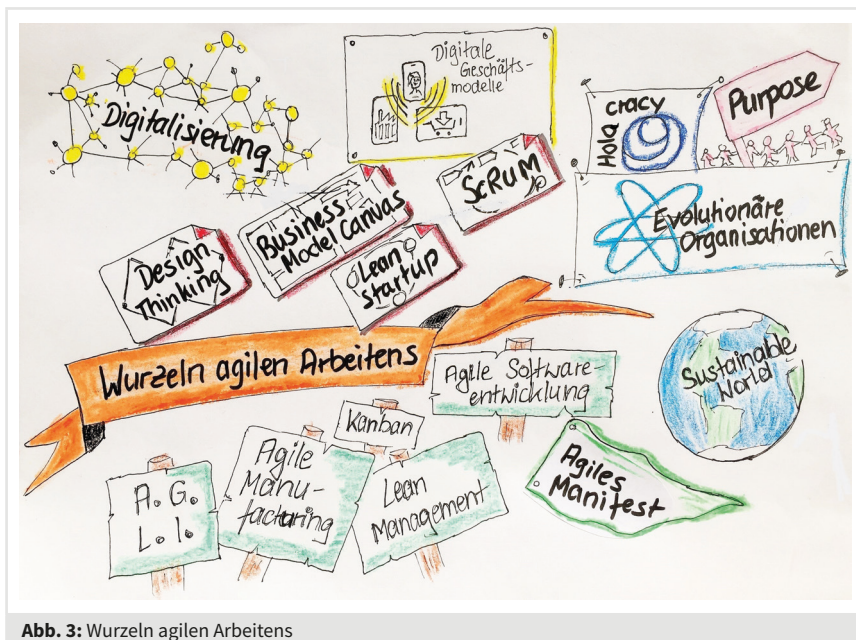 Digitalisierung
Digitale
Geschäfts-
modelle
Hola
cracy
Purpose
ScRuM
Evolutionäre
Organisationen
Business
Model Canvas
Design
Thinking
Lean
startup
Wurzeln agilen Arbeitens
Agile Software-
entwicklung
Sustainable
World
Kanban
Agile
Manu-
facturing
A. G.
L. I.
Lean
Management
Agiles
Manifest
Abb. 3: Wurzeln agilen Arbeitens